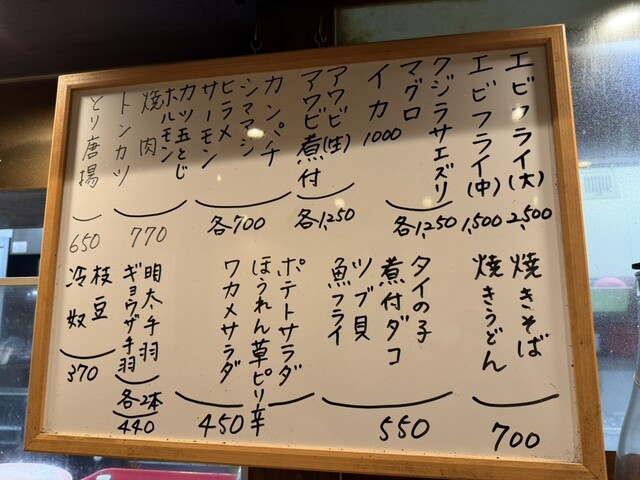 エビフライ(大) 2,500
エビフライ(中) 1,500
クジラサエズリ
マグロ
各1,250
イカ 1000
アワビ(生)
アワビ煮付
各1,250
カンパチ
シマアジ
ヒラメ
サーモン
各700
カツ玉とじ
ホルモン
焼肉
トンカツ
770
とり唐揚
650
焼きそば
焼きうどん
700
タイの子
煮付ダコ
ツブ貝
魚フライ
550
ポテトサラダ
ほうれん草ピリ辛
ワカメサラダ
450
明太手羽
ギョウザ手羽
各2本
440
枝豆
冷奴
370